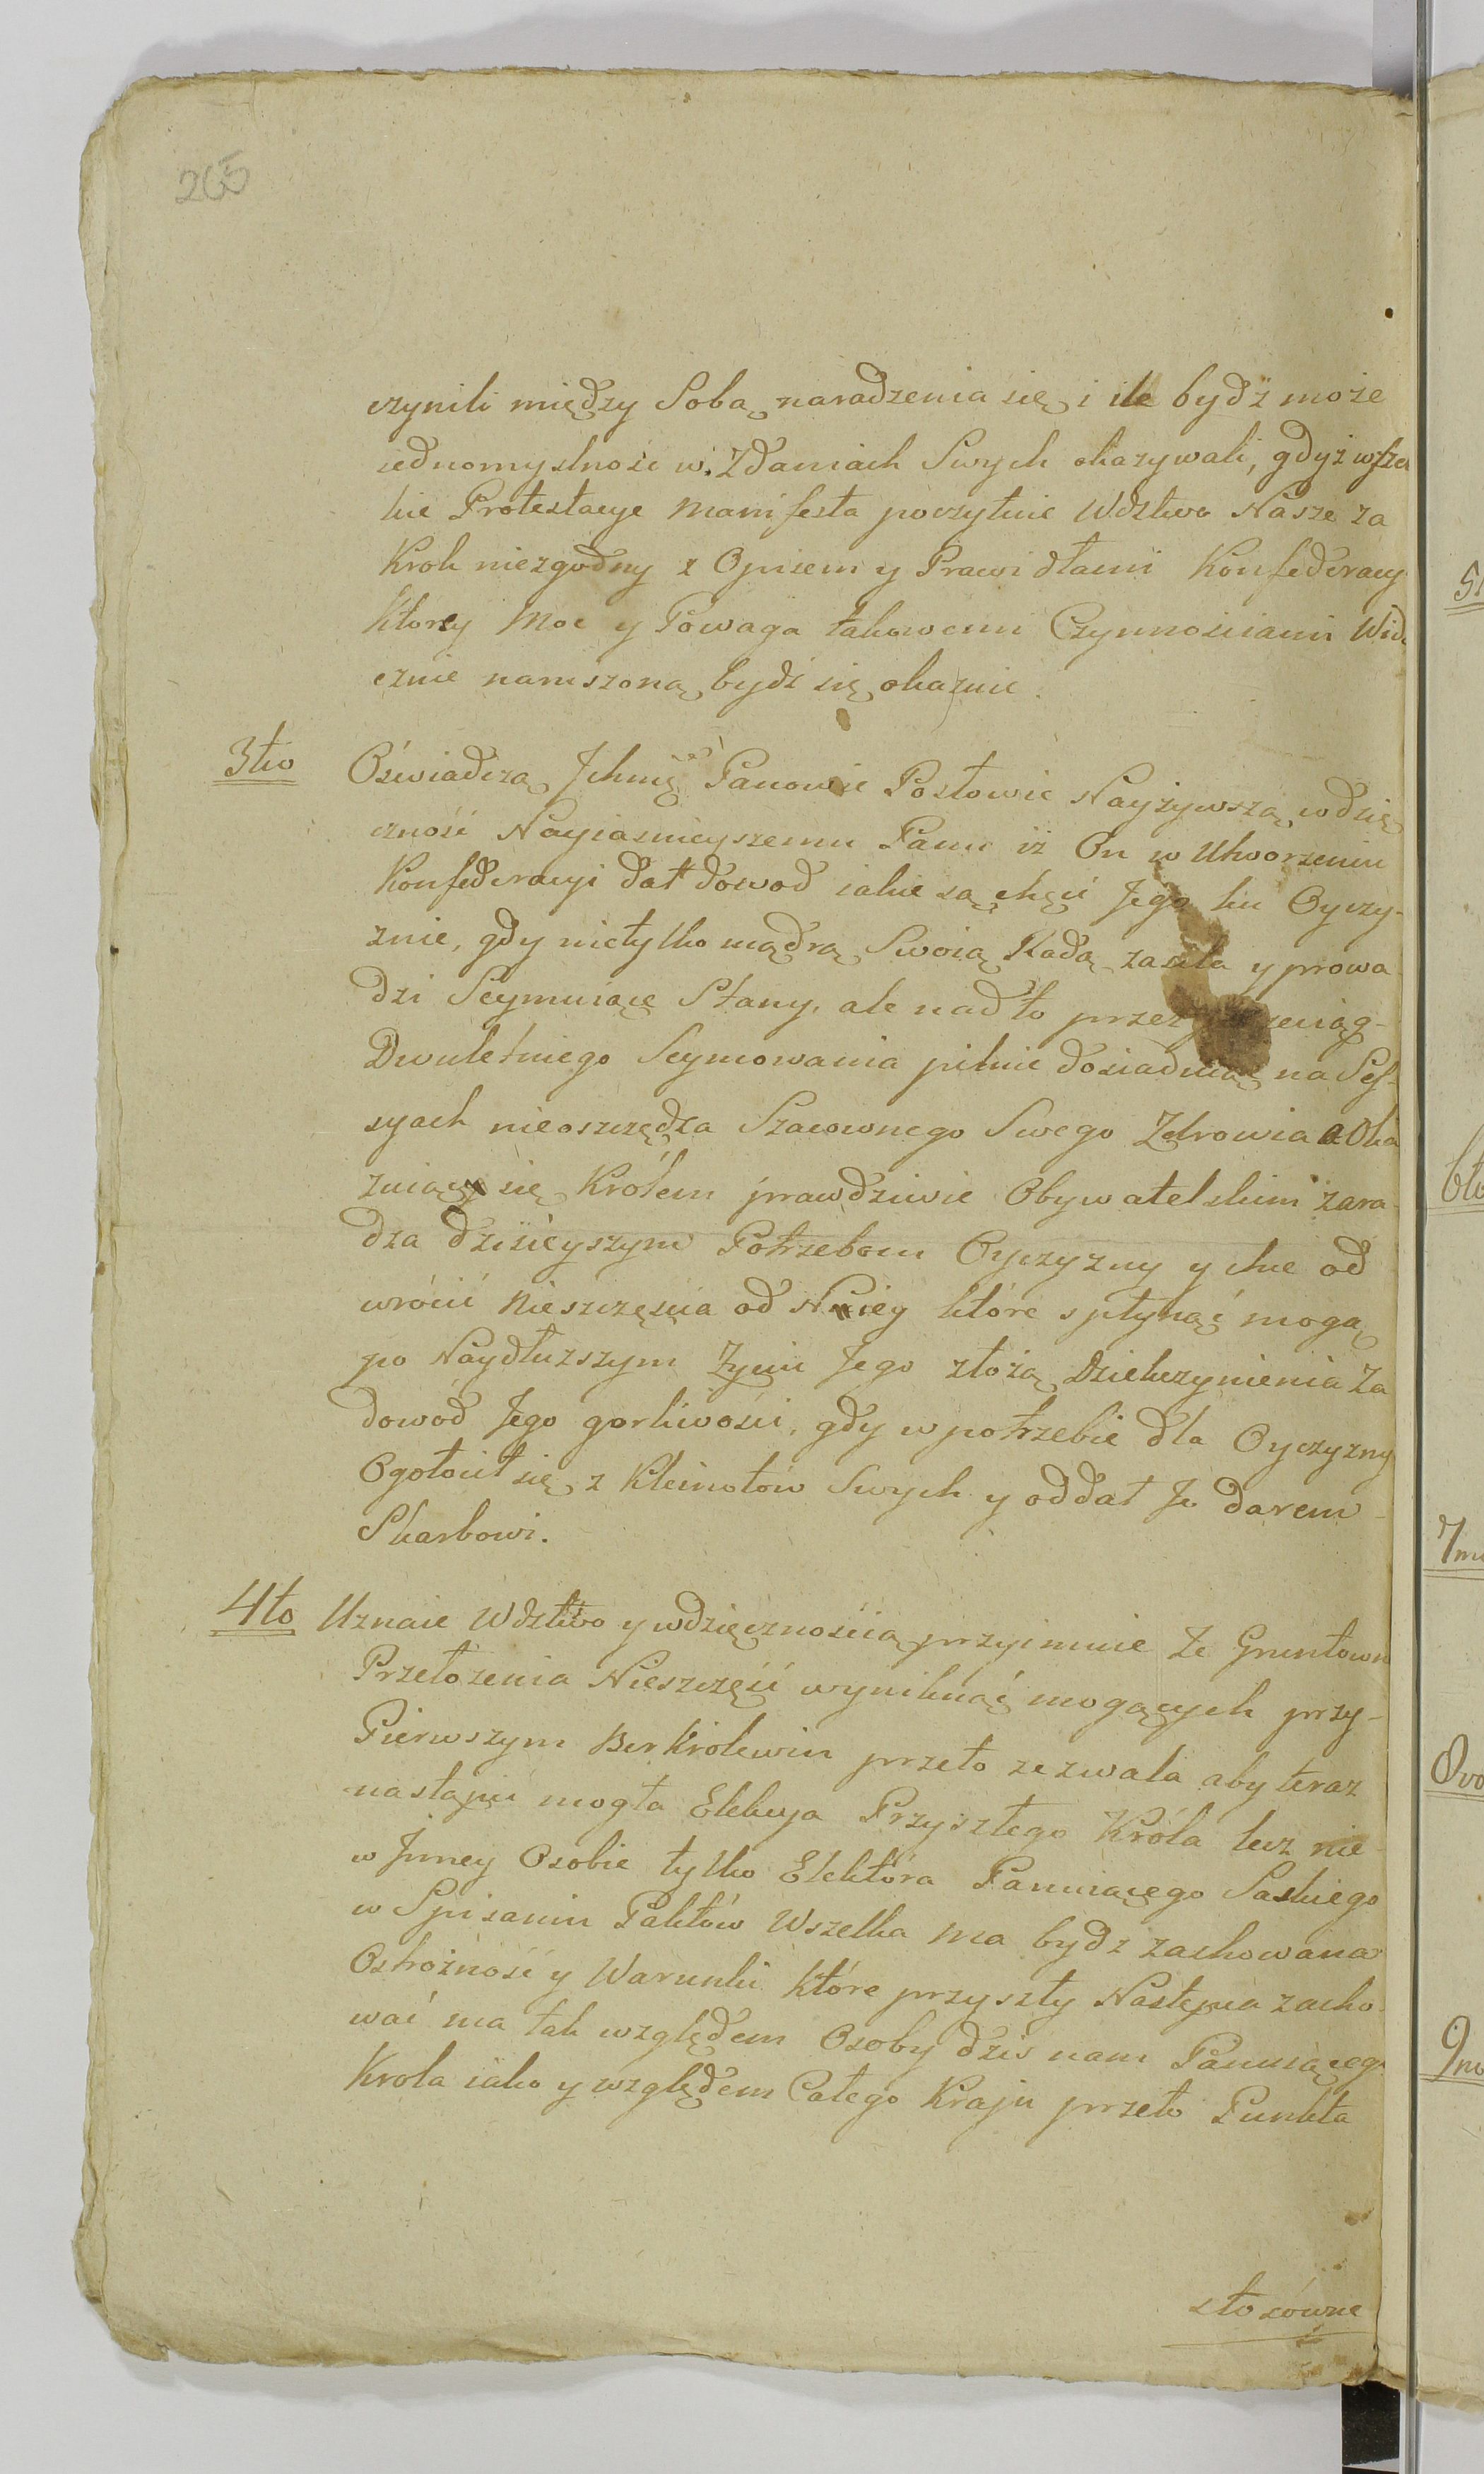 265
czynili między Sobą naradzenia się i ile bydź może
iednomyslność w Zdaniach Swych okazywali, gdyż wszel
kie Protestacye Manifesta poczytuie Wdztwo Nasze za
Krok niezgodny z Opisem y Prawidłami Konfederacyi
Ktorey Moc y Powaga takowemi Czynnościami Wido
cznie naruszoną bydź się okazuie.
3tio Oświadczą Ichmć Panowie Posłowie Nayżywszą wdzię
czność Nayiasnieyszemu Panu iż On w Utworzeniu
Konfederacyi dał dowod iakie są chęci Jego ku Oyczy-
znie, gdy nietylko mądrą Swoią Radą zasila y prowa
dzi Seymuiące Stany, ale nad to przez
Dwuletniego Seymowania pilnie dosiaduiąc na Ses-
syach nieoszczędza Szacownego Swego Zdrowia a Oka
zuiąc się Królem prawdziwie Obywatelskim zara-
dza dzisieyszym Potrzebom Oyczyzny y chce od
wrócić Nieszczęścia od Niey które spłynąć mogą
po Naydłuższym Życiu Jego złożą Dziekczynienia Za
dowód Jego gorliwości, gdy w potrzebie dla Oyczyzny
Ogołocił się z Kleinotów Swych y oddał Je darem
Skarbowi.
4to Uznaie Wdztwo y wdzięcznościa przyimuie Te Gruntown
Przełożenia Nieszczęść wyniknąć mogących przy-
Pierwszym Berkrólewiu przeto zezwala aby teraz
nastąpić mogła Elekcya Przyszłego Króla lecz nie
w Inney Osobie tylko Elektóra Panuiącego Saskiego
w Spisaniu Paktów Wszelka ma bydz zachowana
Ostrożność y Warunki które przyszły Następca zacho-
wać ma tak względem Osoby dziś nam Panuiącego
Krola iako y względem Całego Kraju przeto Punkta
stosówne
6to
7mo
8vo
9no